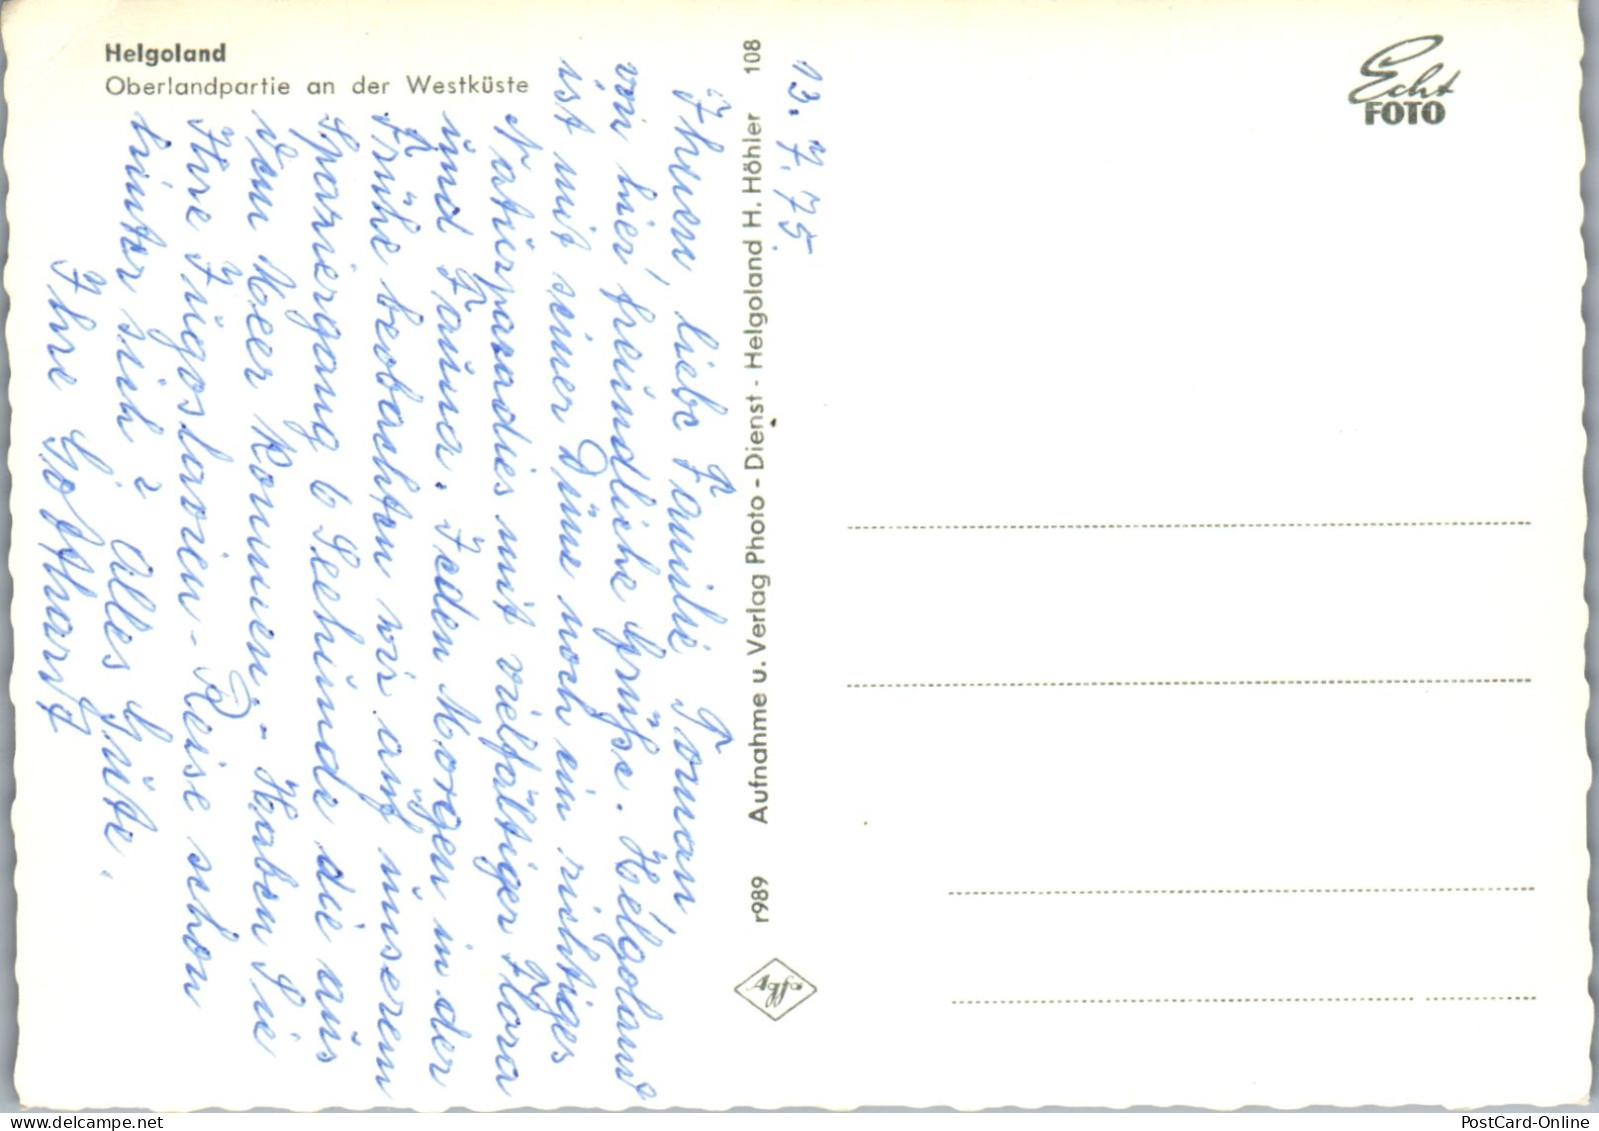 Helgoland
Oberlandpartie an der Westküste
Echt
FOTO
13. 7. 75.
Ihnen, liebe Familie Toman
von hier freundliche Grüße. Helgoland
ist mit seiner Düne noch ein richtiges
Naturparadies mit vielfältiger Flora
und Fauna. Jeden Morgen in der
Frühe beobachten wir auf unserem
Spaziergang 6 Seehunde die aus
dem Meer kommen. - Haben Sie
Ihre Jugoslavien-Reise schon
hinter sich? Alles Gute.
Ihre Gotthardt
r989 Aufnahme u. Verlag Photo - Dienst - Helgoland H. Höhler 108
Agfa
PostCard-Online